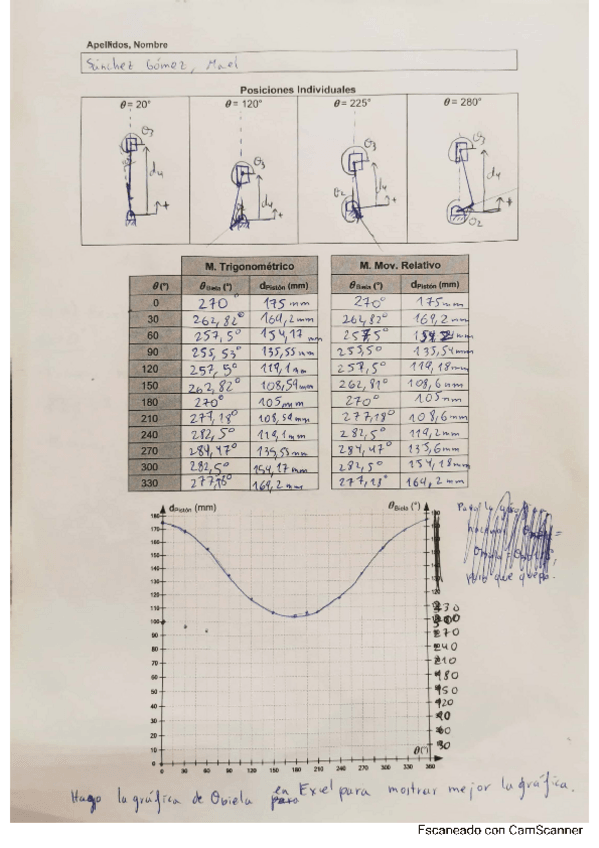 Apellidos, Nombre
Sánchez Gómez, Mael
Posiciones Individuales
θ = 20° θ = 120° θ = 225° θ = 280°
θ3 θ3 θ3 θ3
d4 d4 d4 d4
θ2 θ2
+ + + +
M. Trigonométrico M. Mov. Relativo
θ (°) θBiela (°) dPistón (mm) θBiela (°) dPistón (mm)
0 270° 175 mm 270° 175 mm
30 262,82° 169,2 mm 262,82° 169,2 mm
60 257,5° 154,17 mm 257,5° mm
90 255,53° 135,55 mm 255,5° 135,54 mm
120 257,5° 119,1 mm 257,5° 119,18 mm
150 262,82° 108,59 mm 262,81° 108,6 mm
180 270° 105 mm 270° 105 mm
210 277,18° 108,59 mm 277,18° 108,6 mm
240 282,5° 119,1 mm 282,5° 119,2 mm
270 284,47° 135,53 mm 284,47° 135,6 mm
300 282,5° 154,17 mm 282,5° 154,18 mm
330 277,18° 169,2 mm 277,18° 169,2 mm
dPistón (mm) θBiela (°)
180
170
160
150
140
130
120
110
100
90
80
70
60
50
40
30
20
10
0 30 60 90 120 150 180 210 240 270 300 330 360
θ(°)
330
300
270
240
210
180
150
120
90
60
30
para que quepa.
Hago la gráfica de θbiela en Excel para mostrar mejor la gráfica.
Escaneado con CamScanner